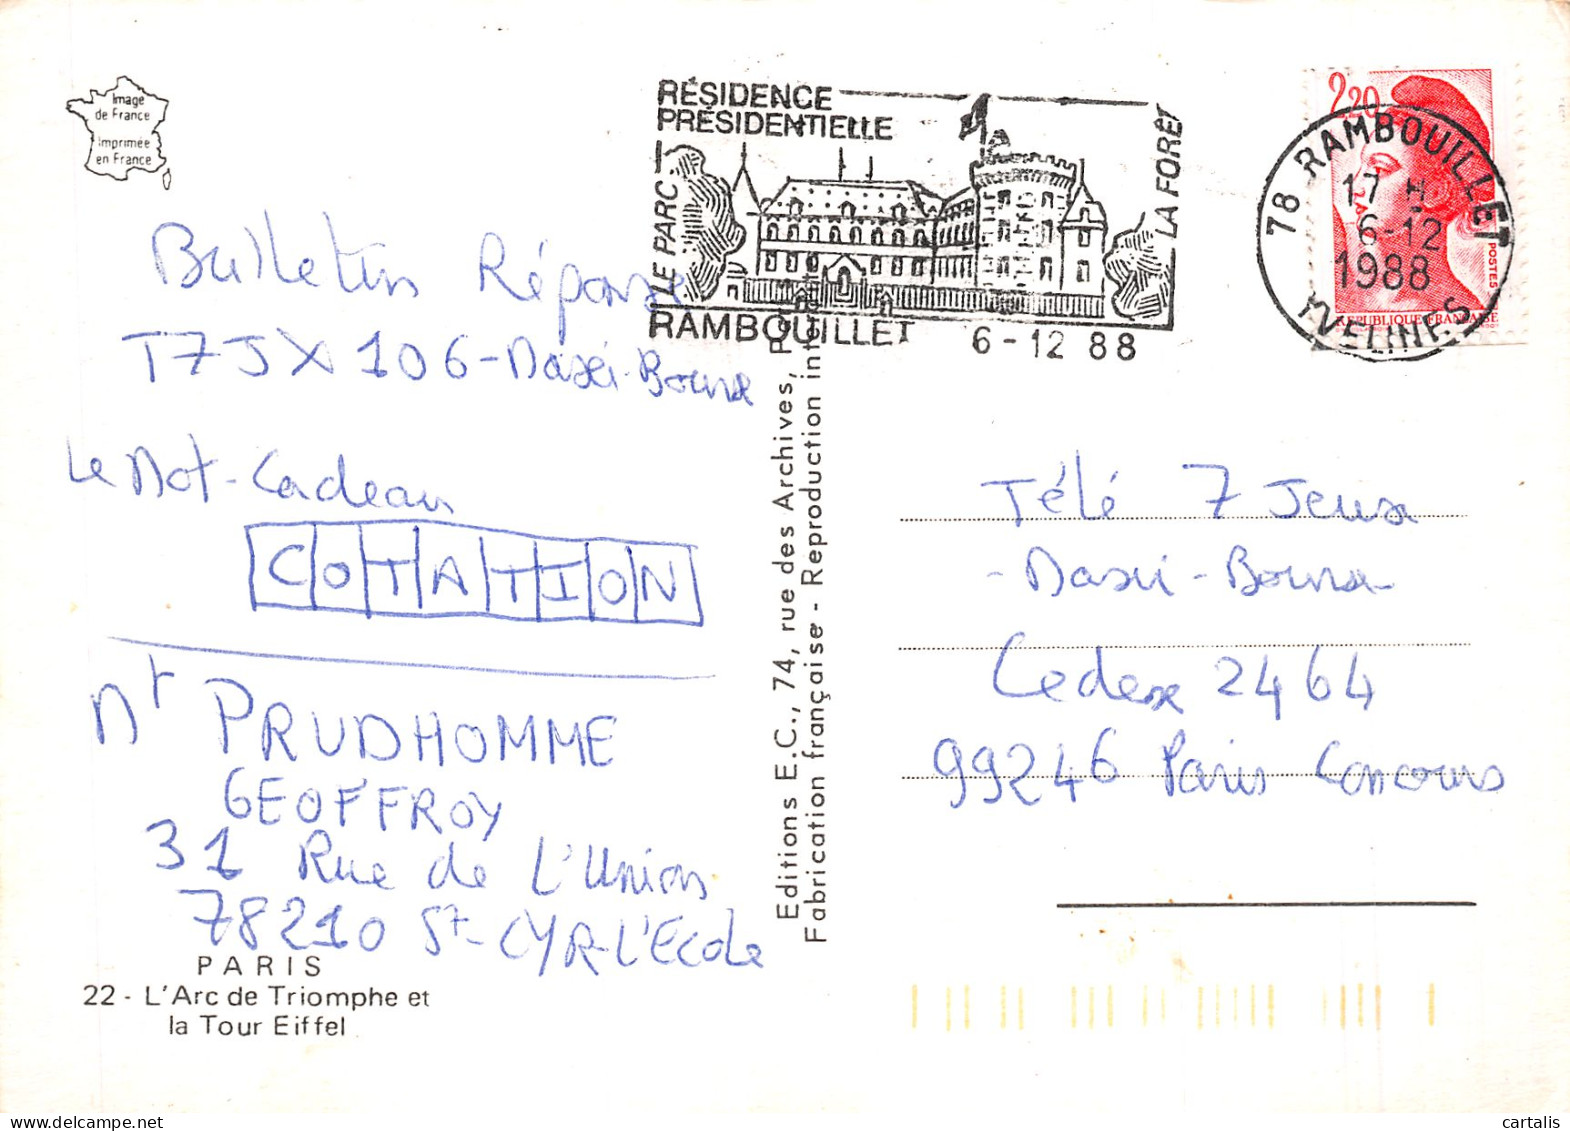 Image
de France
Imprimée
en France
RÉSIDENCE
PRÉSIDENTIELLE
LE PARC
LA FORÊT
RAMBOUILLET 6-12 88
2,20
POSTES
REPUBLIQUE FRANÇAISE
78 RAMBOUILLET
17 H
6-12
1988
YVELINES
Bulletin Réponse
T7JX 106-Maxi-Bonux
Le Mot-Cadeau
COTATION
Mr PRUDHOMME
GEOFFROY
31 Rue de L'Union
78210 St-CYR-L'Ecole
PARIS
22 - L'Arc de Triomphe et
la Tour Eiffel
Editions E.C., 74, rue des Archives,
Fabrication française - Reproduction
Télé 7 Jeux
- Maxi - Bonux
Cedex 2464
99246 Paris Concours
cartalis